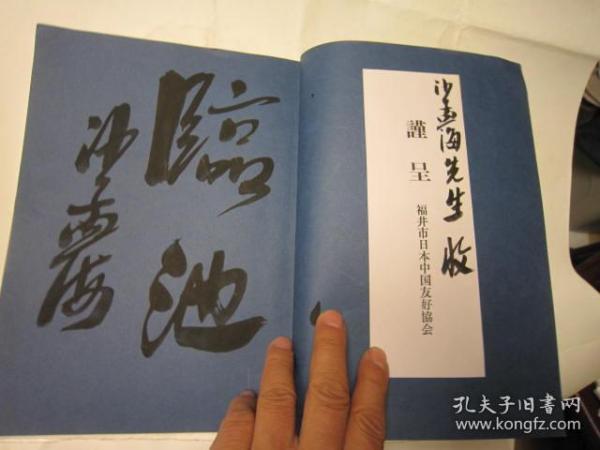 沙孟海先生收
謹呈
福井市日本中国友好協会
臨池
沙孟海
孔夫子旧书网
www.kongfz.com